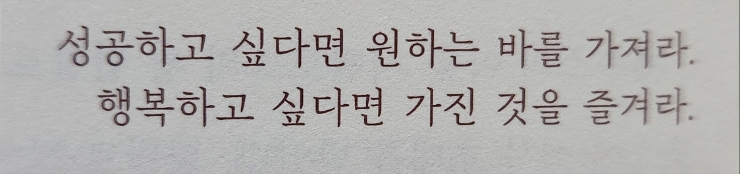 성공하고 싶다면 원하는 바를 가져라.
행복하고 싶다면 가진 것을 즐겨라.